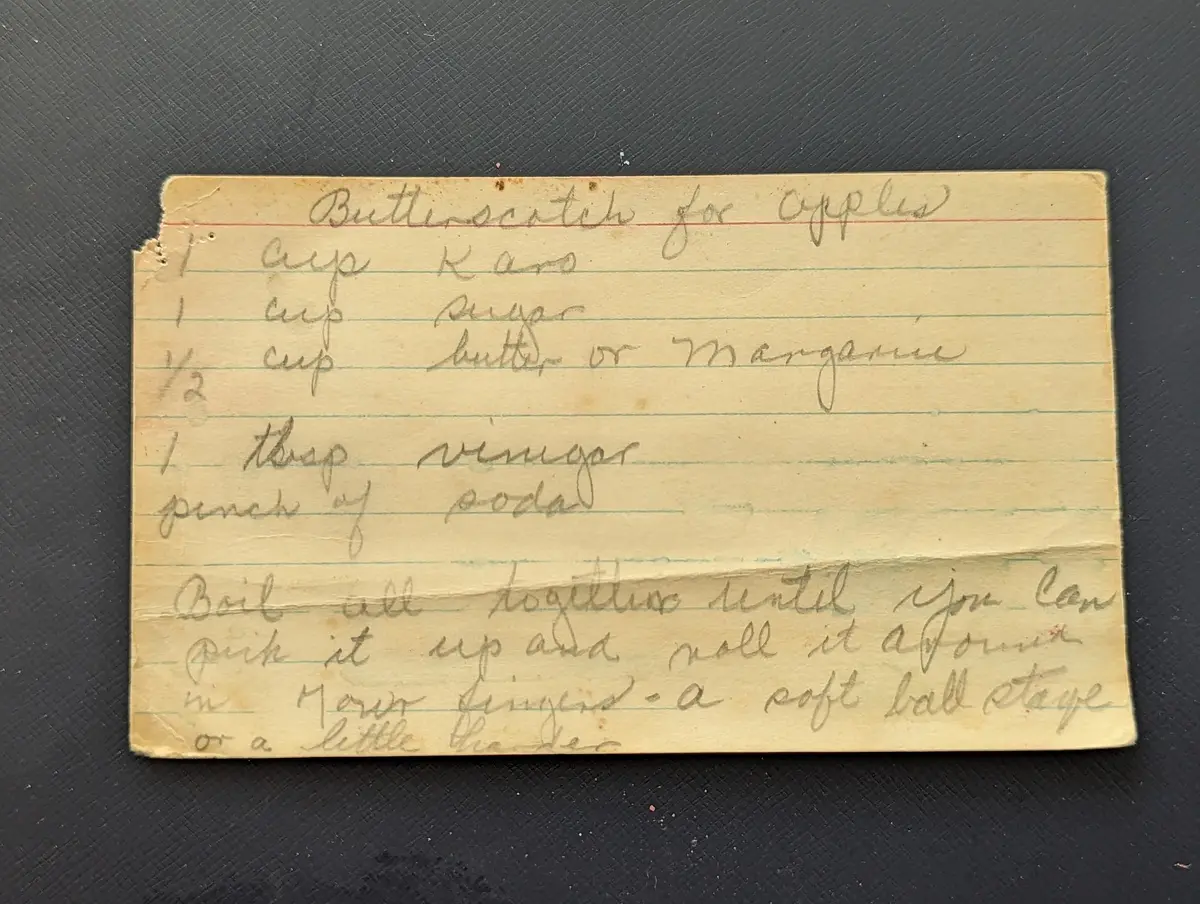 Butterscotch for apples
1 cup Karo
1 cup sugar
1/2 cup butter or Margarine
1 tbsp vinegar
pinch of soda
Boil all together until you can
pick it up and roll it around
in your fingers - a soft ball stage
or a little harder